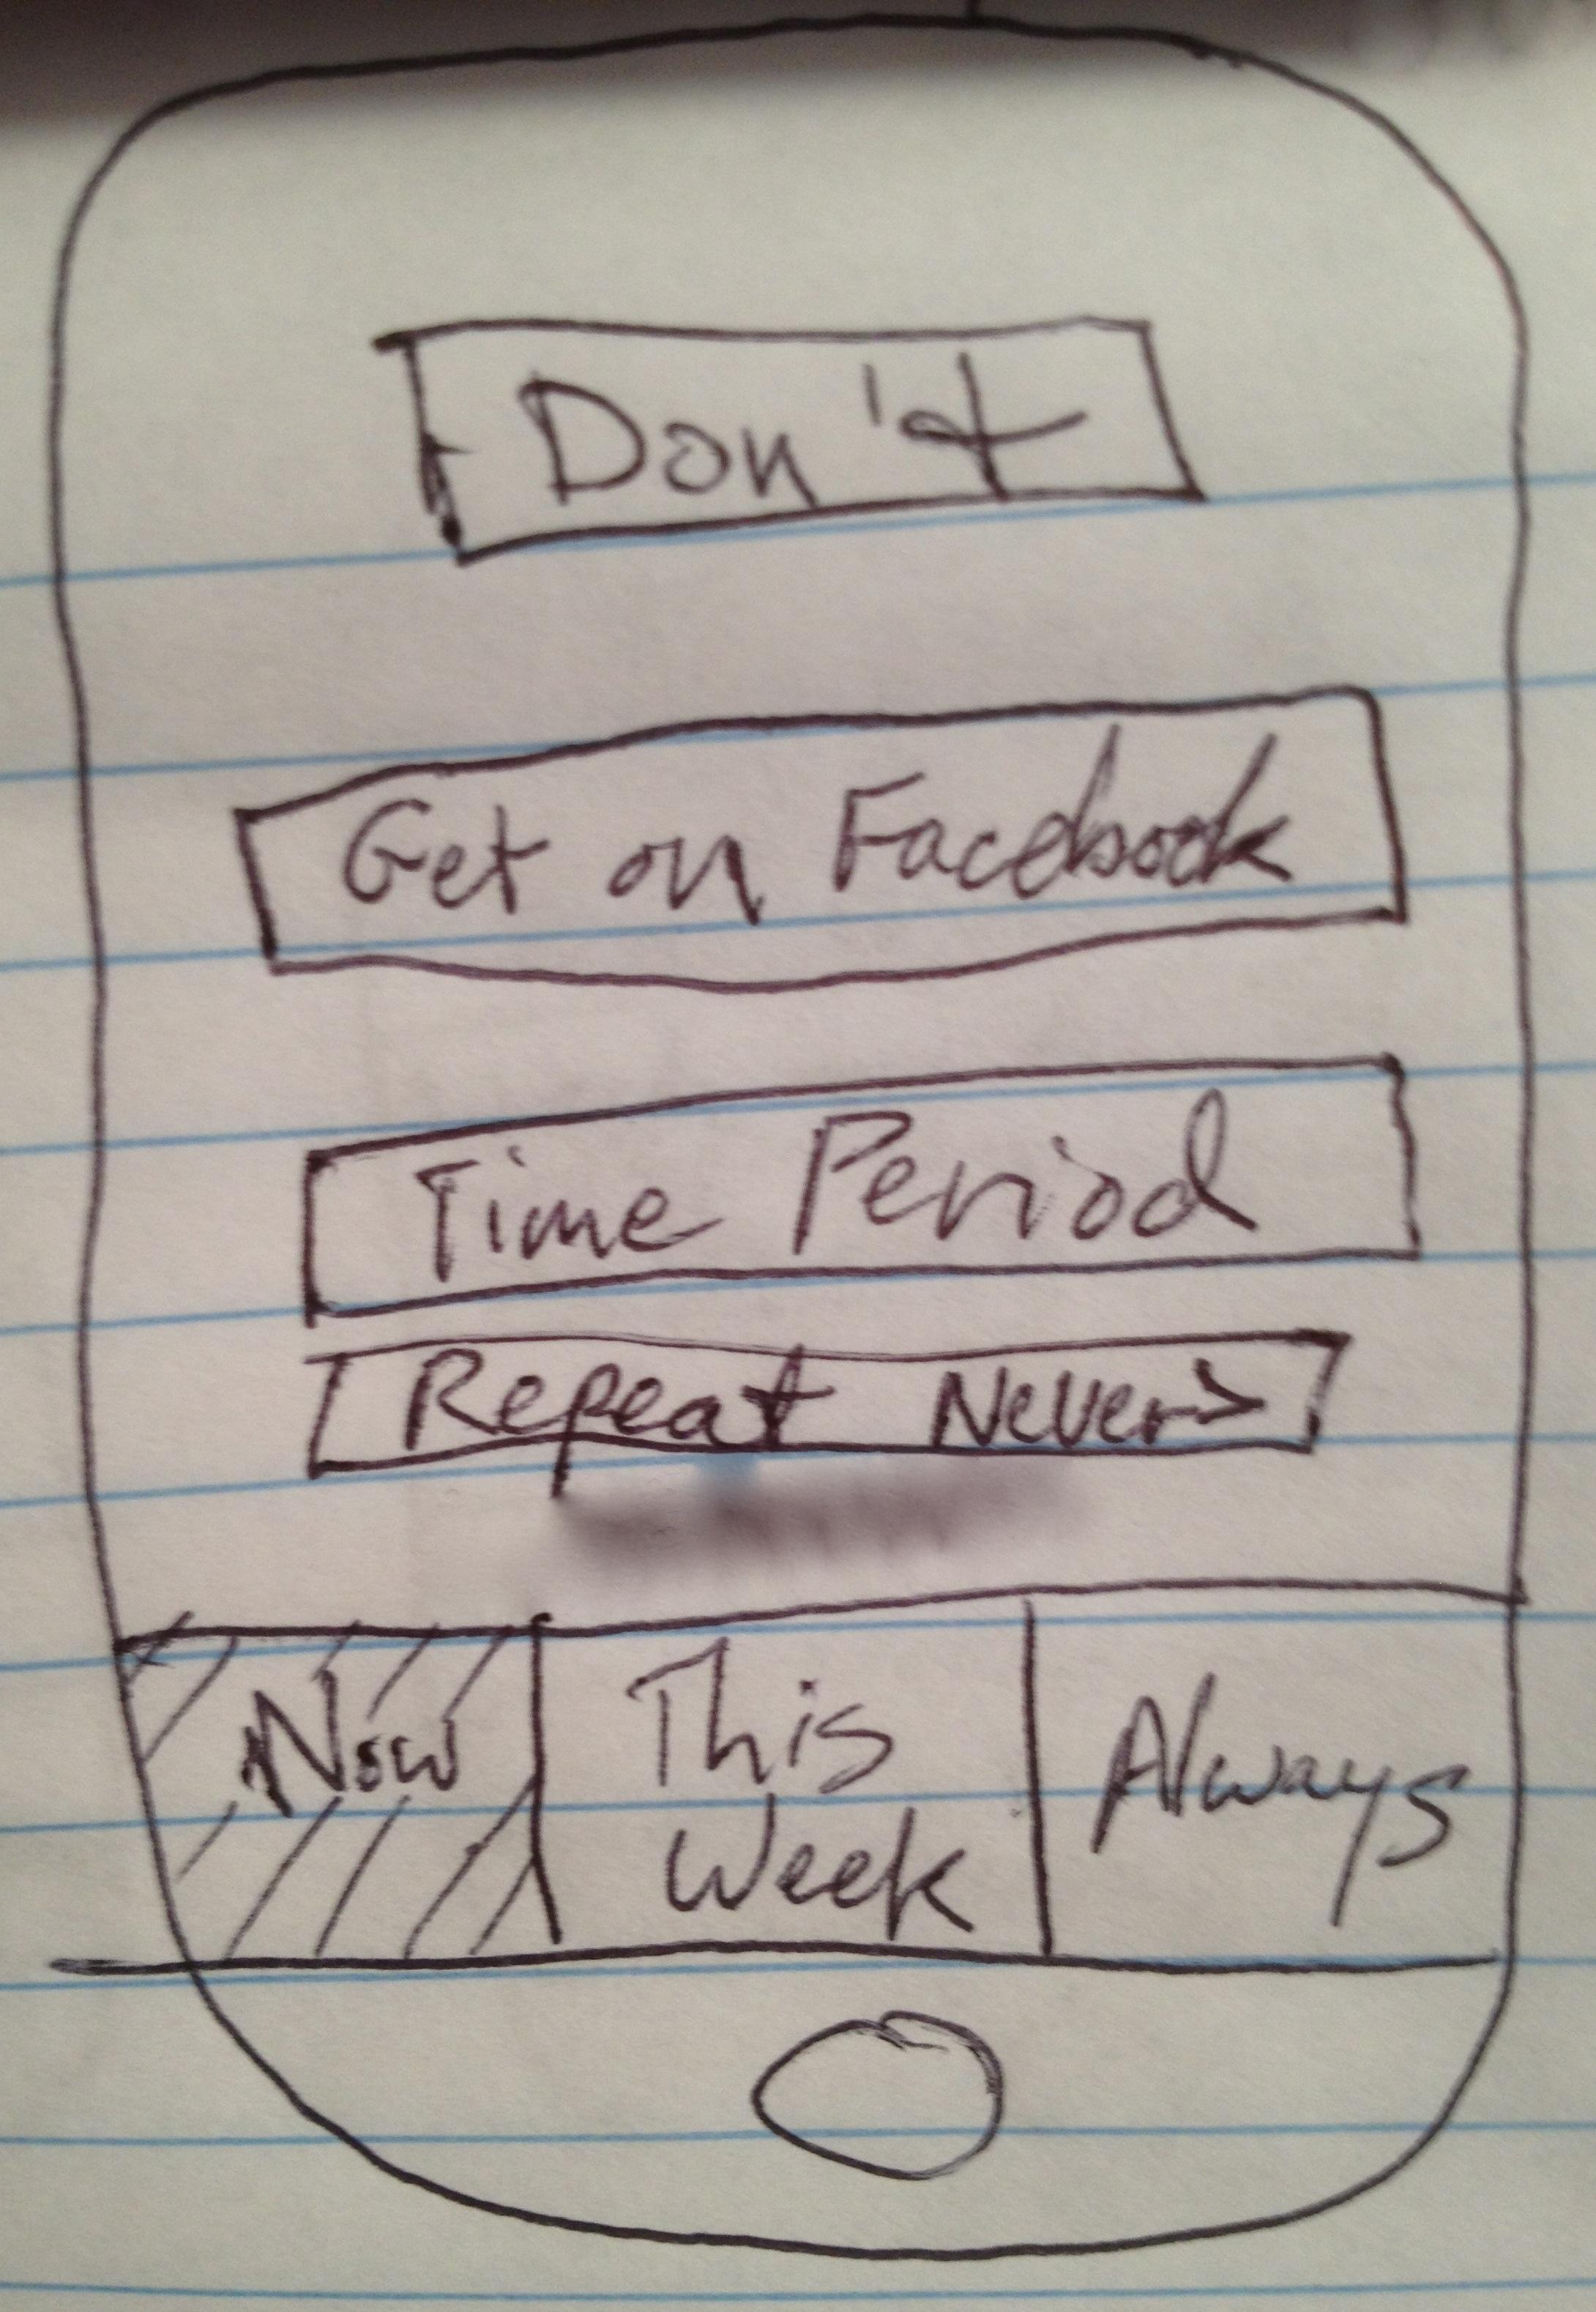 Don't
Get on Facebook
Time Period
Repeat Never>
Now
This
Week
Always